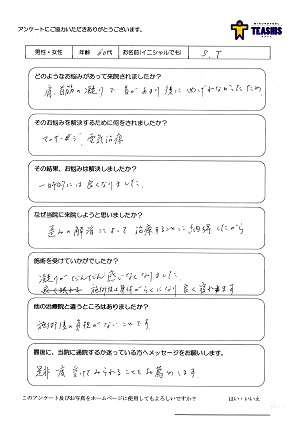 アンケートにご協力いただきありがとうございます。
TEASHIS
男性・女性 年齢 60代 お名前(イニシャルでも) S.T
どのようなお悩みがあって来院されましたか?
肩、首筋の凝りで首があまり後にめげれなかったため
そのお悩みを解決するために何をされましたか?
マッサージ、電気治療
その結果、お悩みは解決しましたか?
一時的には良くなりました
なぜ当院に来院しようと思いましたか?
歪みの解消によって治療することに納得したから
施術を受けていかがでしたか?
凝りがだんだん感じなくなりました
施術後は身体がらくになり良く寝れます
他の治療院と違うところはありましたか?
施術後の負担がないことです
最後に、当院に通院するか迷っている方へメッセージをお願いします。
是非一度受けてみられることをお薦めします。
このアンケート及びお写真をホームページに使用してもよろしいですか? はい・いいえ